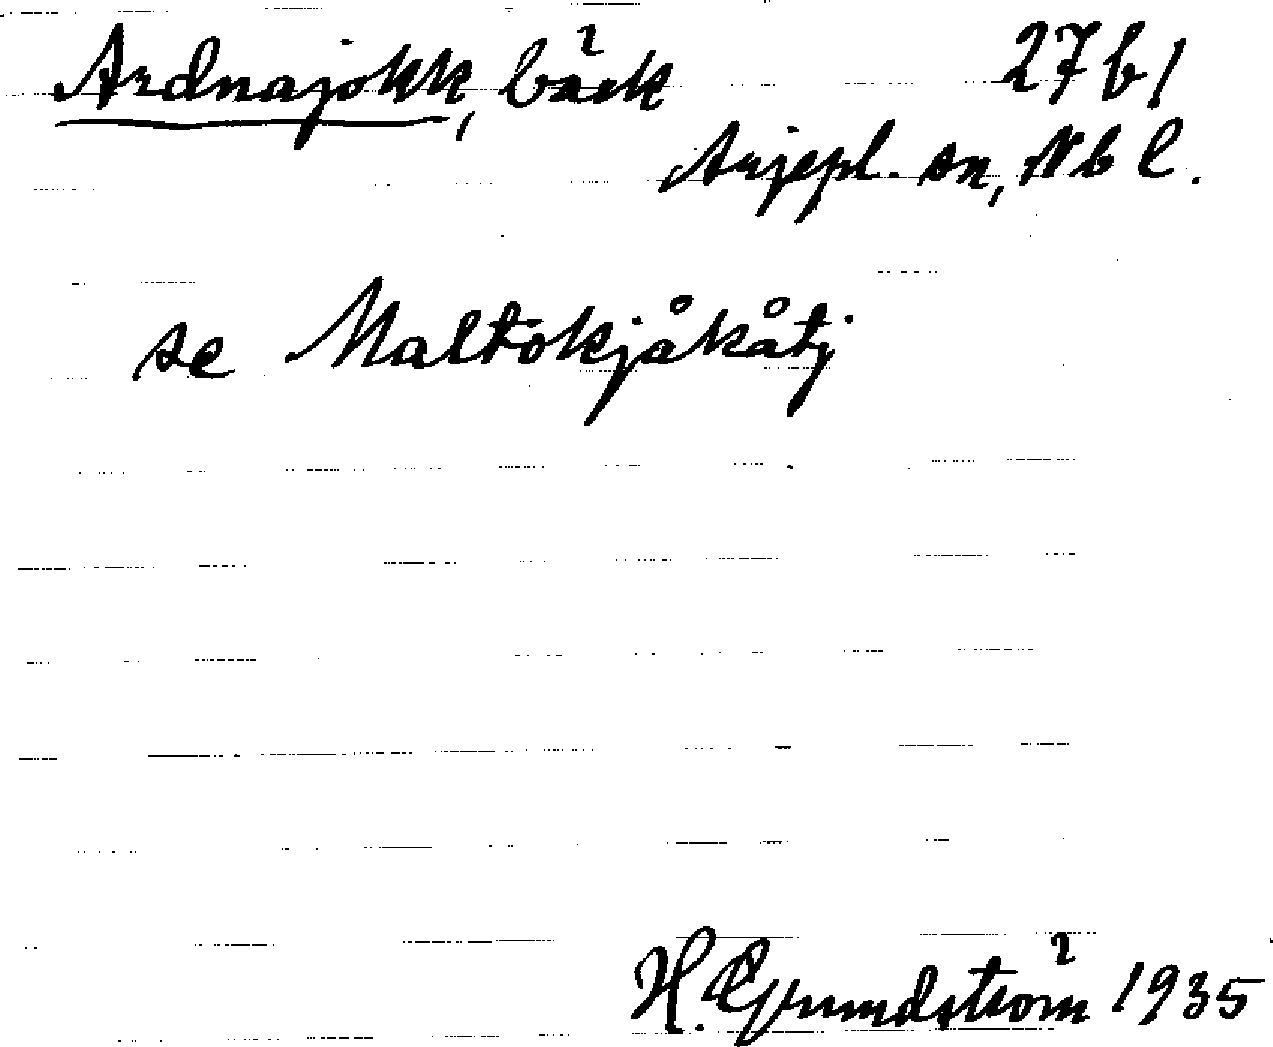 Ardnajokk, bäck 27b1
Arjepl. sn, Nb l.
se Maltokjåkåtj
H. Grundström 1935